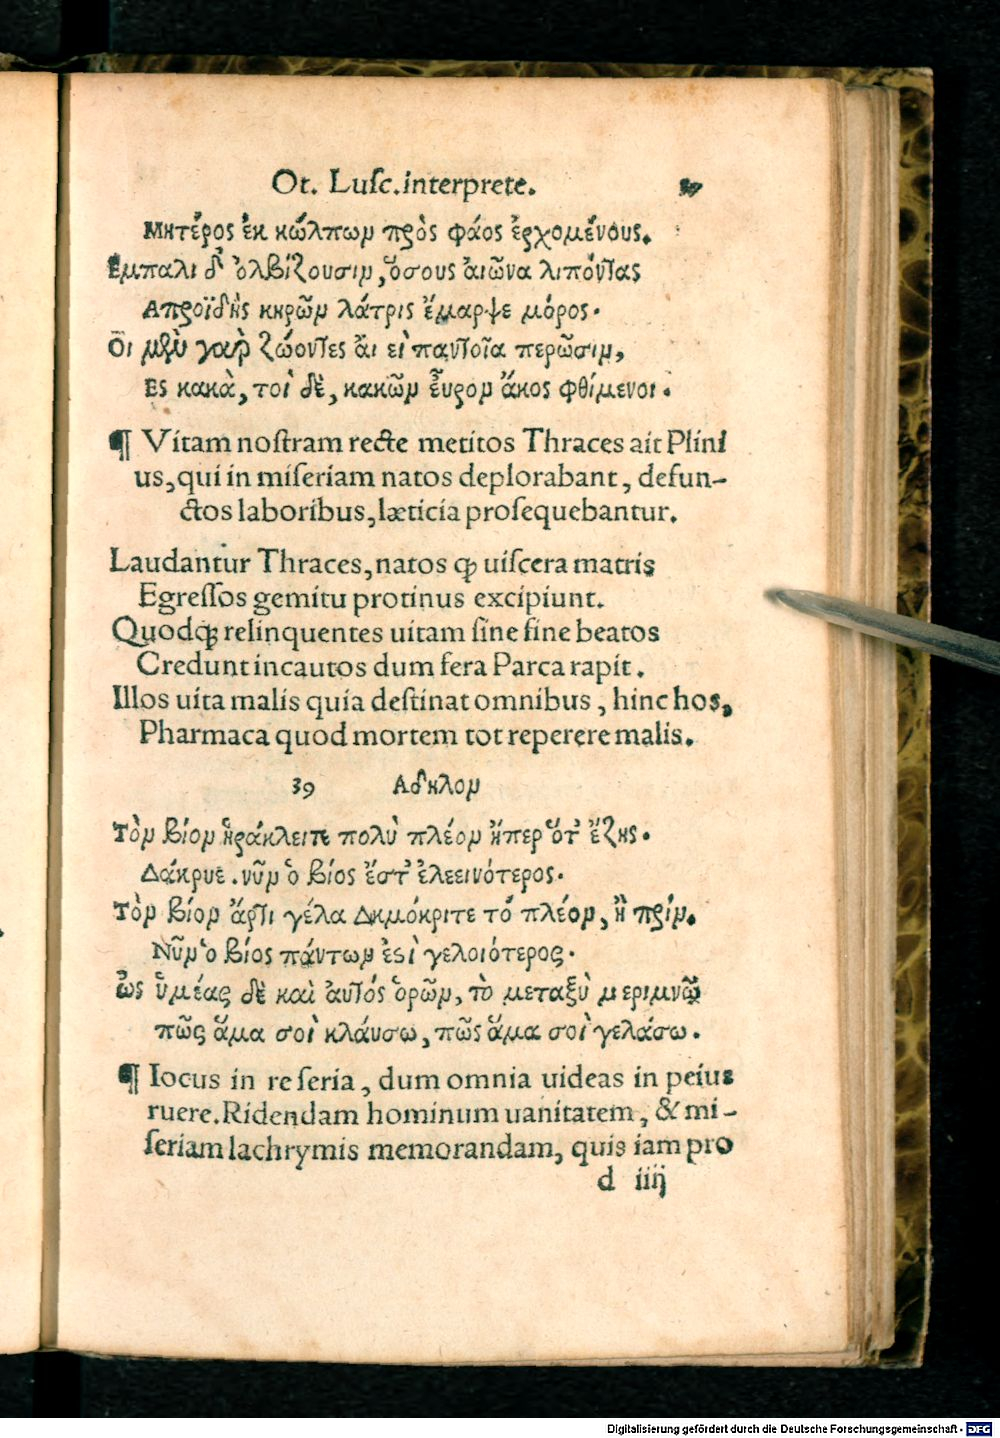 Ot. Luſc. interprete. 27
Μητέρος ἐκ κώλπων πρὸς φάος ἐρχομένους.
Εμπαλι δ' ὀλβίζουσιν, ὅσους αἰῶνα λιπόντας
Απροϊδὴς κηρῶν λάτρις ἔμαρψε μόρος.
Οἱ μὲν γαρ ζώοντες ἄι εὶ παντοῖα περῶσιν,
Ες κακὰ, τοὶ δὲ, κακῶν ἓυρον ἄκος φθίμενοι.
¶ Vitam noſtram recte metitos Thraces ait Plini
us, qui in miſeriam natos deplorabant, defun-
ctos laboribus, læticia proſequebantur.
Laudantur Thraces, natos ꝙ uiſcera matris
Egreſſos gemitu protinus excipiunt.
Quodq; relinquentes uitam ſine fine beatos
Credunt incautos dum fera Parca rapit.
Illos uita malis quia deſtinat omnibus, hinc hos,
Pharmaca quod mortem tot reperere malis.
39 Αδηλον
Τὸν βίον ἡράκλειτε πολὺ πλέον ἤπερ ὅτ' ἔζης.
Δάκρυε. νῦν ὁ βίος ἔστ' ἐλεεινότερος.
Τὸν βίον ἄρτι γέλα Δημόκριτε τό πλέον, ἢ πρίν.
Νῦν ὁ βίος πάντων ἐστὶ γελοιότερος.
ὣς ὑμέας δὲ καὶ ἀυτός ὁρῶν, τὸ μεταξὺ μεριμνῶ
πῶς ἅμα σοὶ κλάυσω, πῶς ἅμα σοὶ γελάσω.
¶ Iocus in re ſeria, dum omnia uideas in peius
ruere. Ridendam hominum uanitatem, & mi-
ſeriam lachrymis memorandam, quis iam pro
d iiij
Digitalisierung gefördert durch die Deutsche Forschungsgemeinschaft - DFG